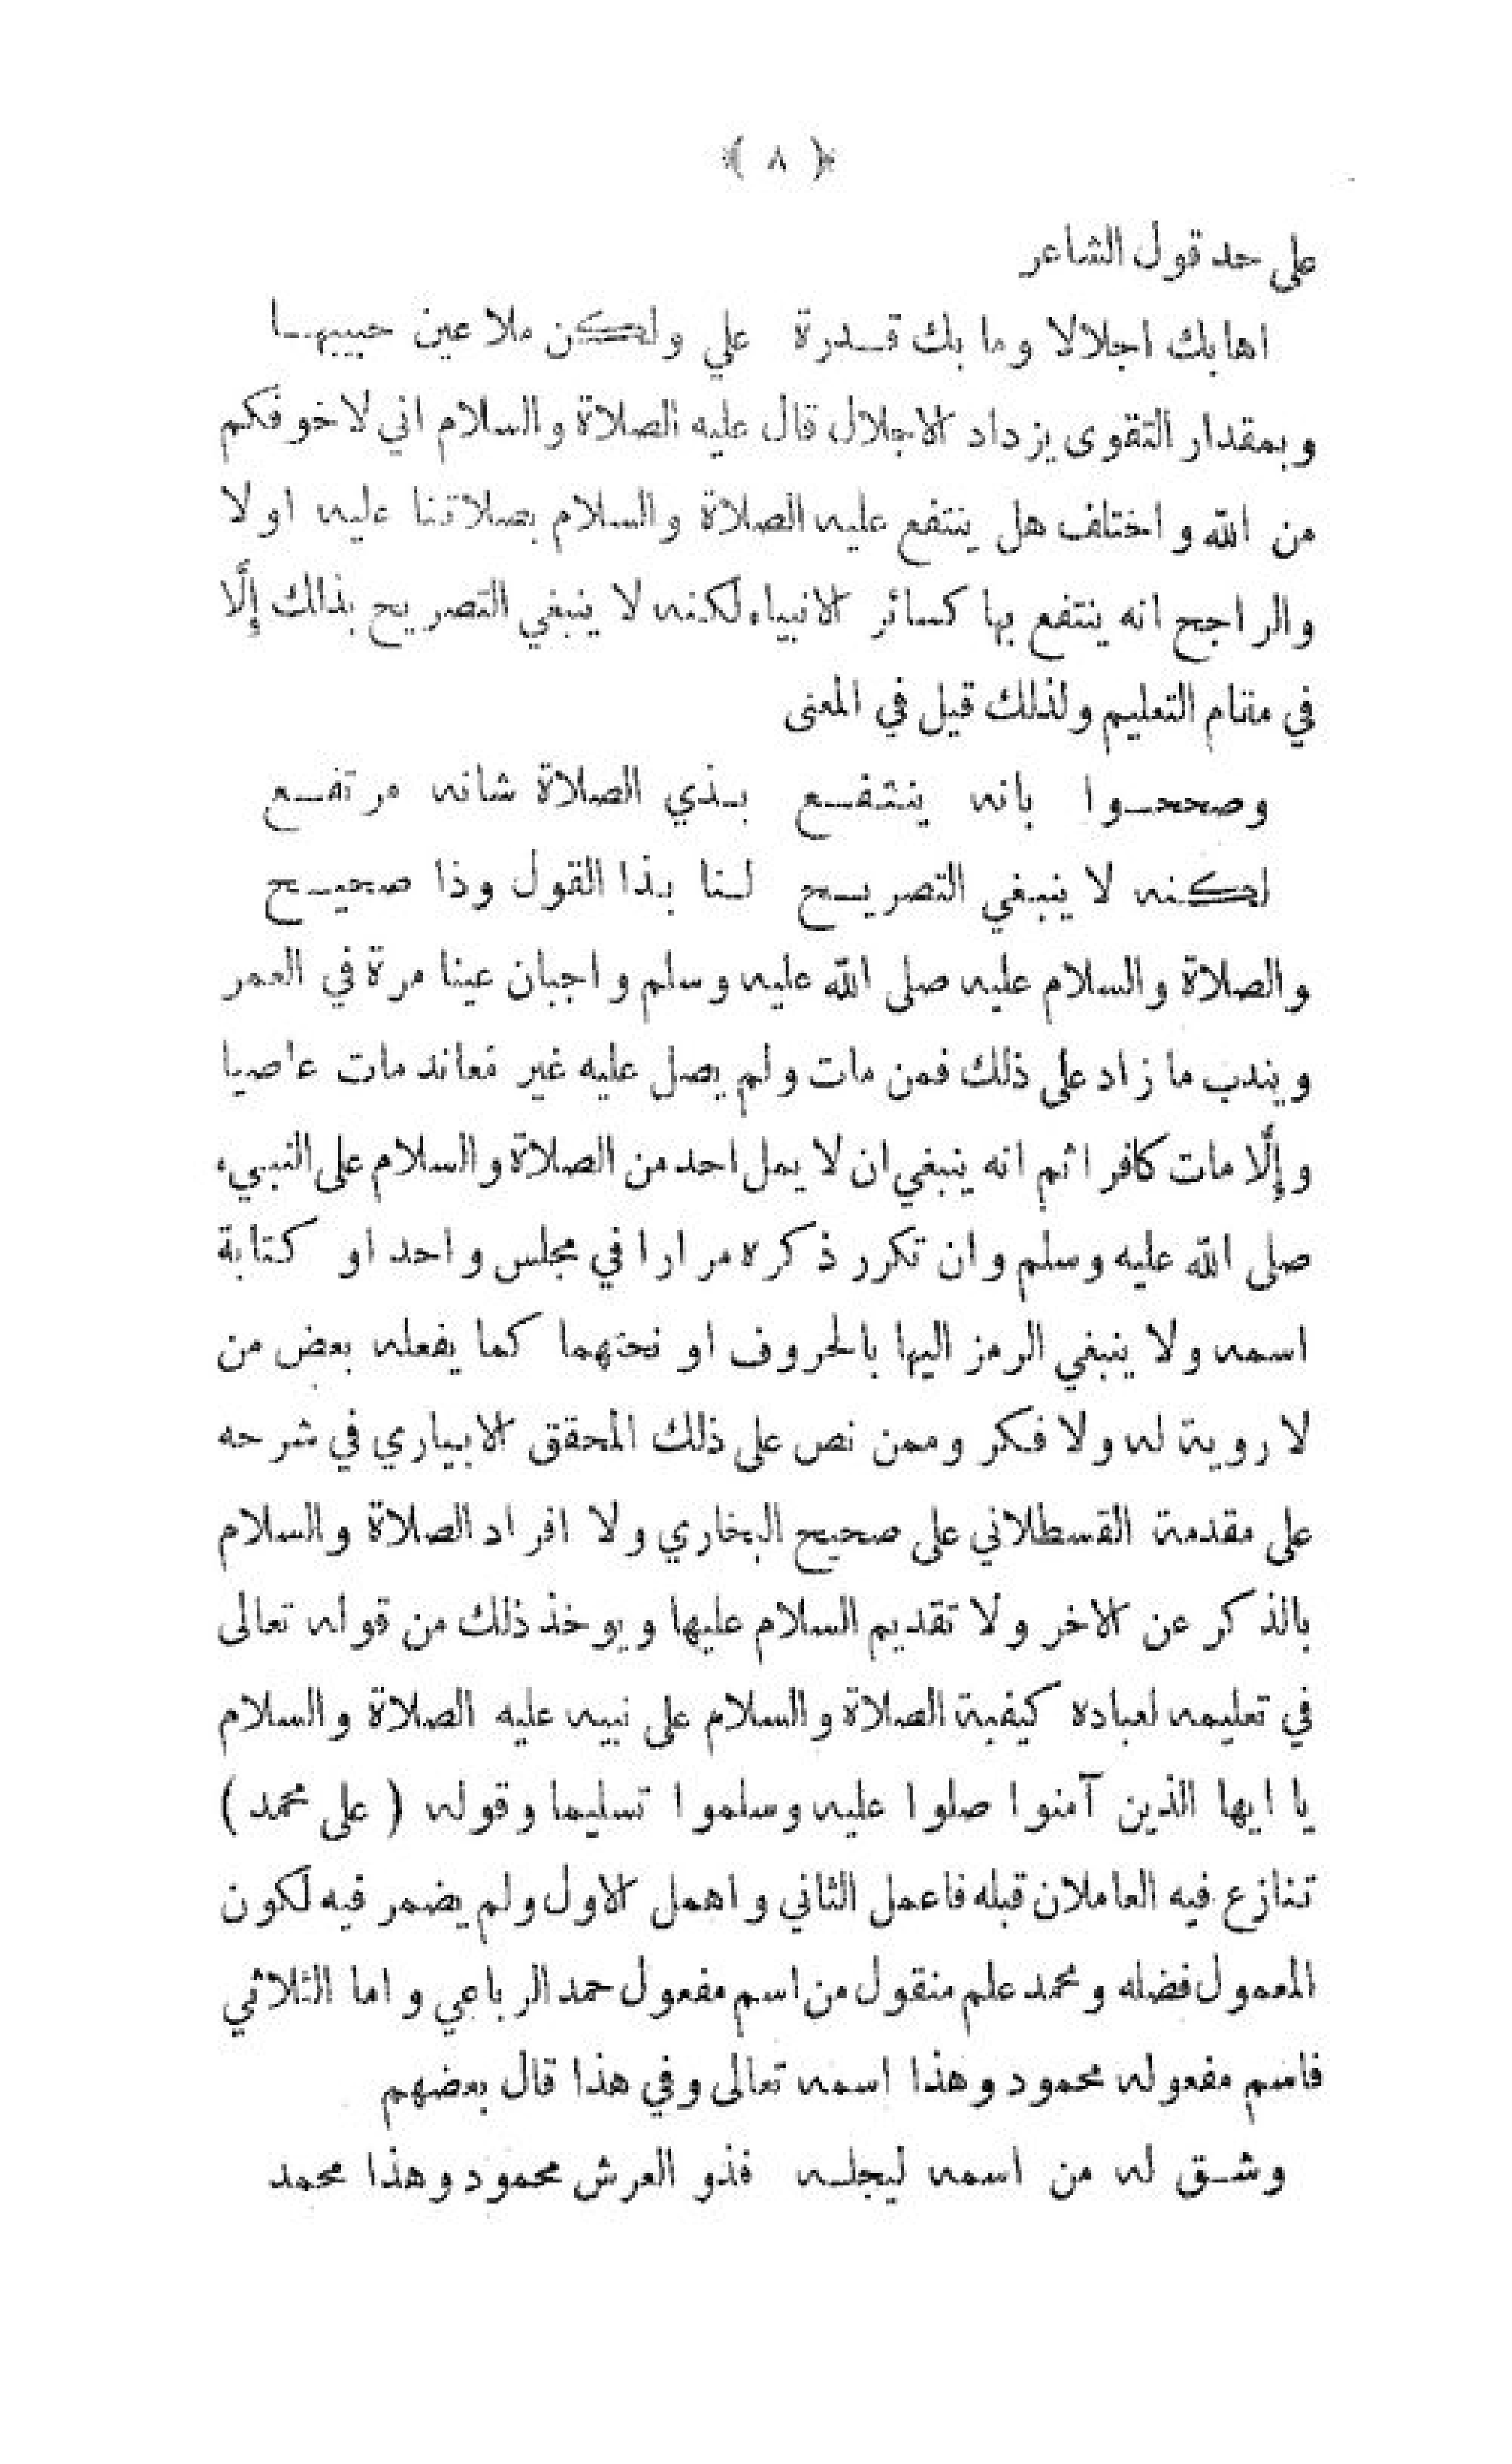 ﴿ ٨ ﴾
على حد قول الشاعر
اهابك اجلالا وما بك قدرة علي ولكن ملا عين حبيبها
وبمقدار التقوى يزداد الاجلال قال عليه الصلاة والسلام اني لاخوفكم
من الله واختلف هل ينتفع عليه الصلاة والسلام بصلاتنا عليه اولا
والراجح انه ينتفع بها كسائر الانبياء لكنه لا ينبغي التصريح بذلك إلَّا
في مقام التعليم ولذلك قيل في المعنى
وصححوا بانه ينتفع بذي الصلاة شانه مرتفع
لكنه لا ينبغي التصريح لنا بذا القول وذا صحيح
والصلاة والسلام عليه صلى الله عليه وسلم واجبان عينا مرة في العمر
ويندب ما زاد على ذلك فمن مات ولم يصل عليه غير معاند مات عاصيا
وإلَّا مات كافرا ثم انه ينبغي ان لا يمل احد من الصلاة والسلام على النبيء
صلى الله عليه وسلم وان تكرر ذكره مرارا في مجلس واحد او كتابة
اسمه ولا ينبغي الرمز اليها بالحروف او نحتهما كما يفعله بعض من
لا روية له ولا فكر وممن نص على ذلك المحقق الابياري في شرحه
على مقدمة القسطلاني على صحيح البخاري ولا افراد الصلاة والسلام
بالذكر عن الاخر ولا تقديم السلام عليها ويوخذ ذلك من قوله تعالى
في تعليمه لعباده كيفية الصلاة والسلام على نبيه عليه الصلاة والسلام
يا ايها الذين آمنوا صلوا عليه وسلموا تسليما وقوله ( على محمد )
تنازع فيه العاملان قبله فاعمل الثاني واهمل الاول ولم يضمر فيه لكون
المعمول فضله ومحمد علم منقول من اسم مفعول حمد الرباعي واما الثلاثي
فاسم مفعوله محمود وهذا اسمه تعالى وفي هذا قال بعضهم
وشق له من اسمه ليجله فذو العرش محمود وهذا محمد